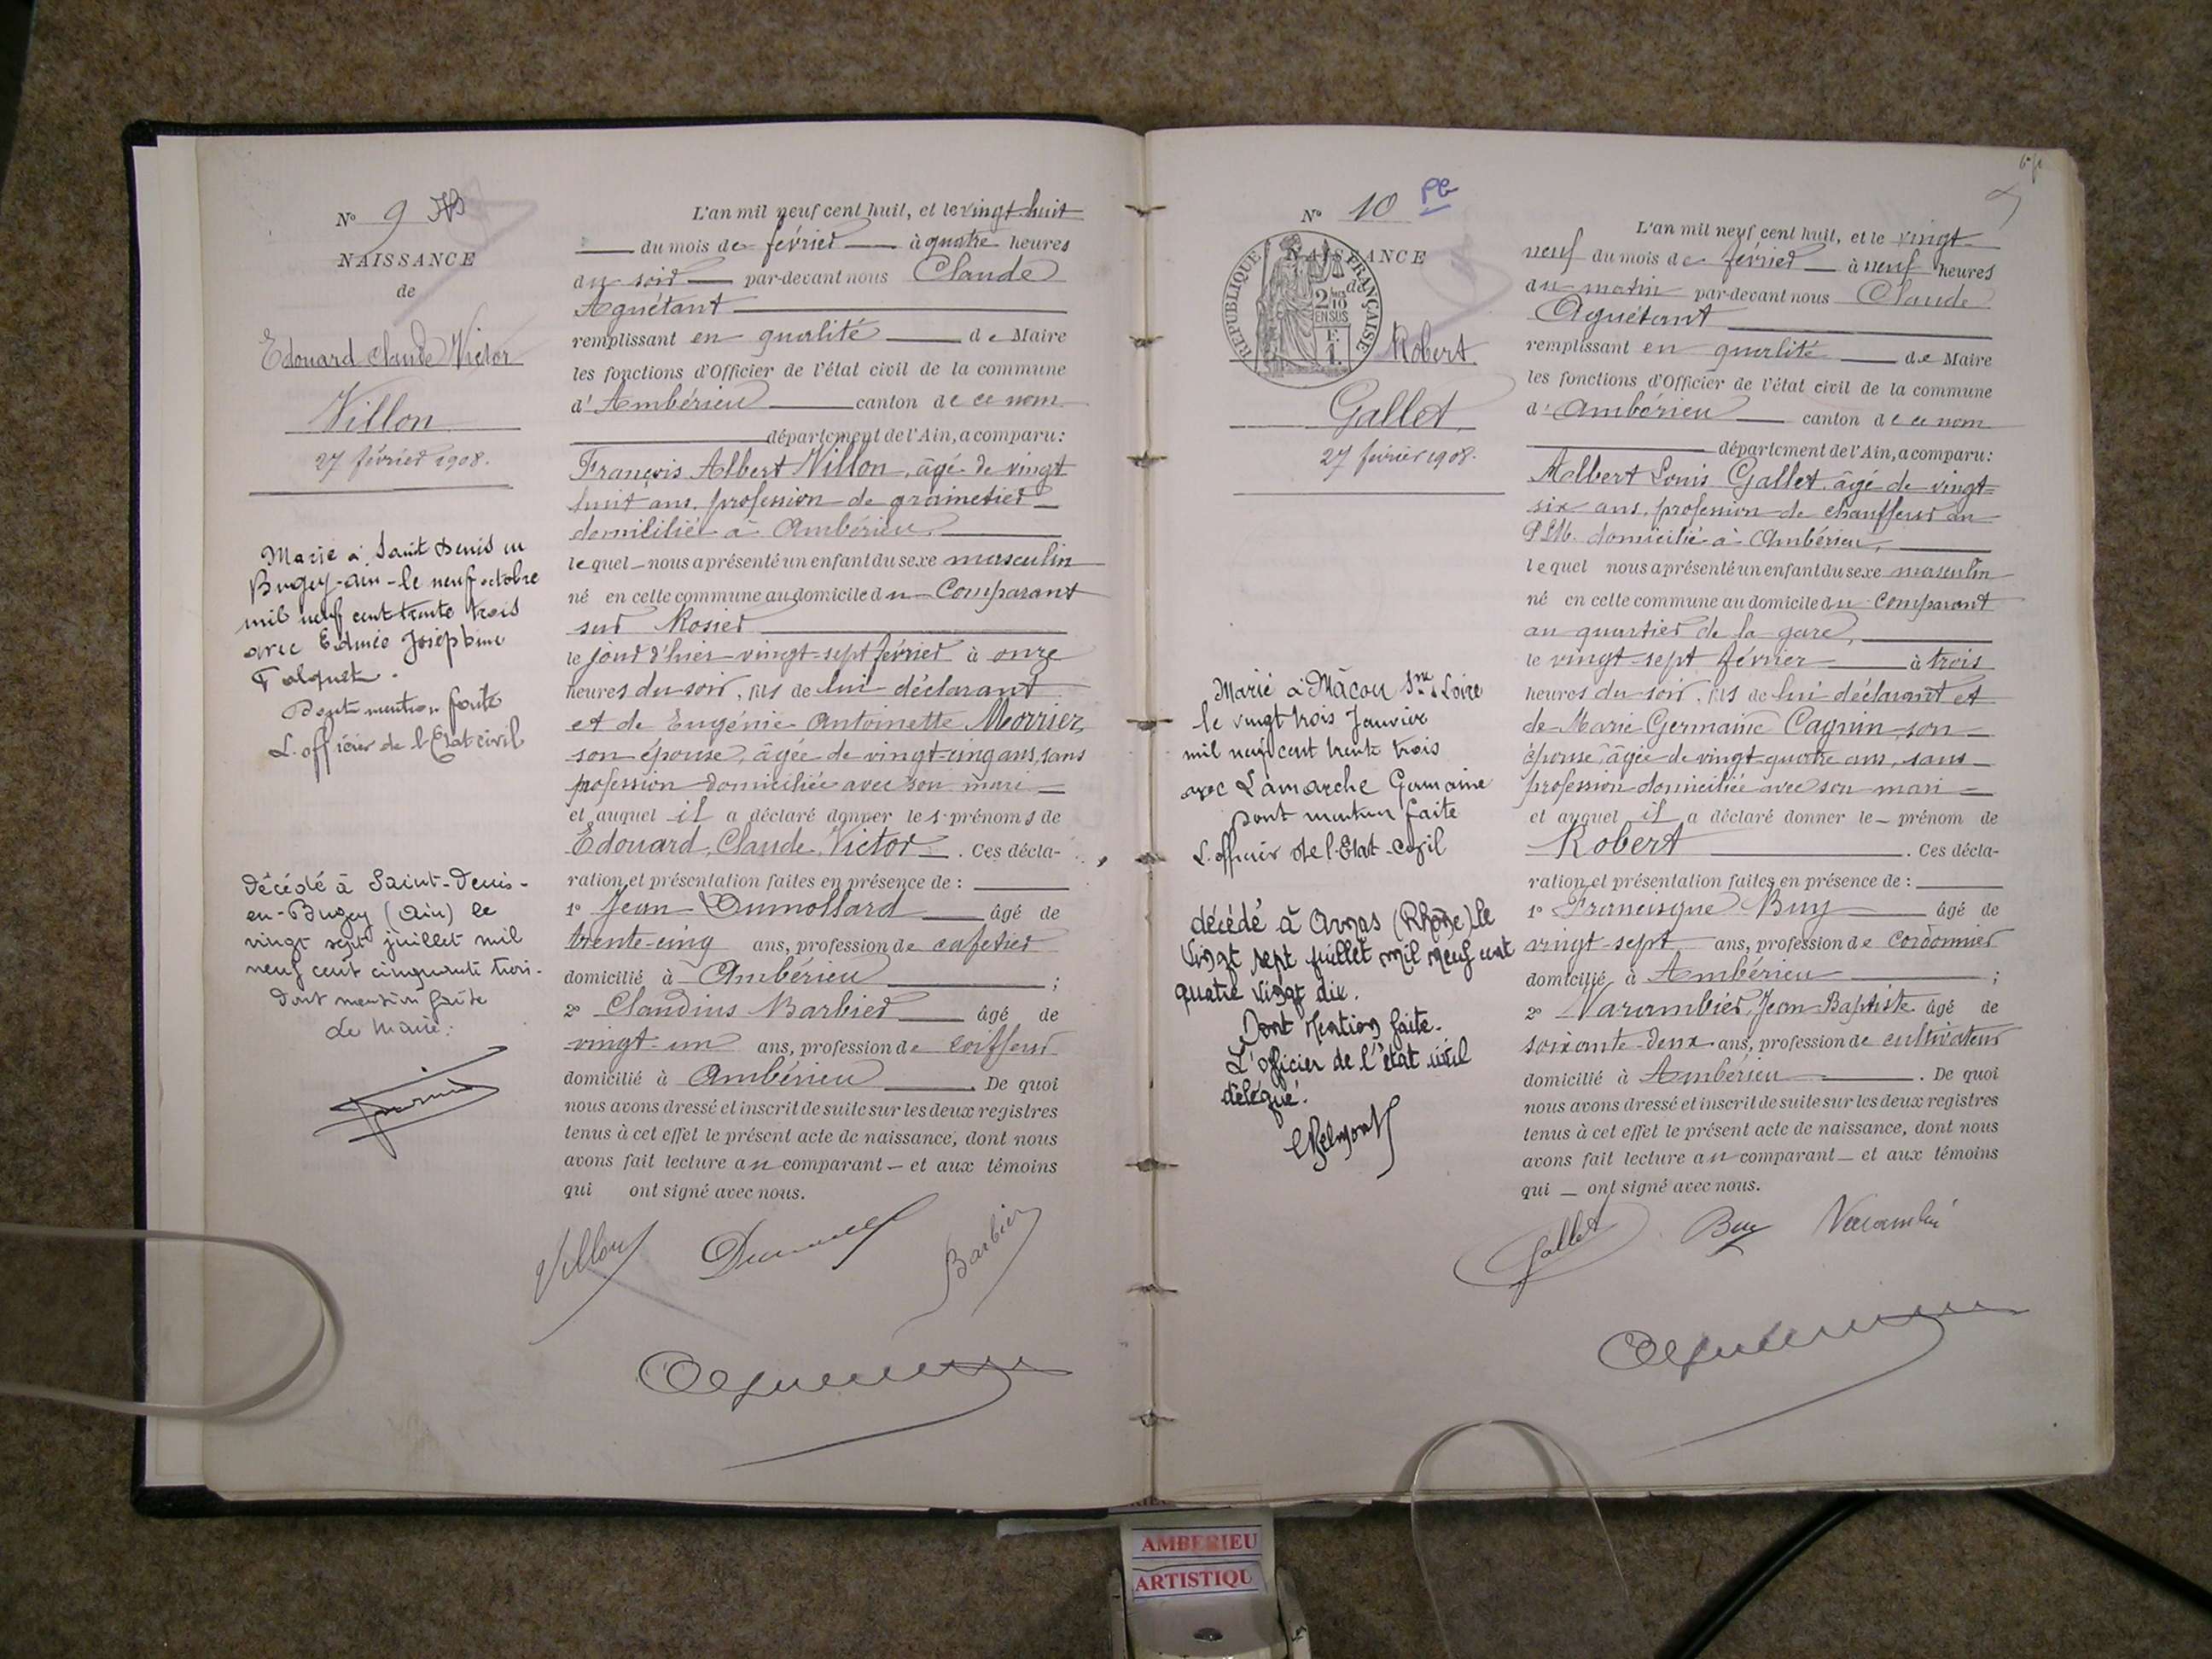 N° 9
NAISSANCE
de
Edouard Claude Victor
Villon
27 février 1908.
Marié à Saint Denis en
Bugey-Ain-le neuf octobre
mil neuf cent trente trois
avec Edmée Joséphine
Falquet.
Dont mention faite
L'officier de l'Etat civil
Décédé à Saint-Denis-
en-Bugey (Ain) le
vingt sept juillet mil
neuf cent cinquante trois.
Dont mention faite
Le Maire:
L'an mil neuf cent huit, et le vingt-huit
du mois de février à quatre heures
du soir par-devant nous Claude
Aguétant
remplissant en qualité de Maire
les fonctions d'Officier de l'état civil de la commune
d'Ambérieu canton de ce nom
département de l'Ain, a comparu:
François Albert Villon, âgé de vingt
huit ans, profession de grainetier
domicilié à Ambérieu,
lequel nous a présenté un enfant du sexe masculin
né en cette commune au domicile du Comparant
sur Rosier
le jour d'hier vingt-sept février à onze
heures du soir, fils de lui déclarant
et de Eugénie Antoinette Morrier,
son épouse, âgée de vingt-cinq ans, sans
profession domiciliée avec son mari
et auquel il a déclaré donner les prénoms de
Edouard, Claude, Victor . Ces décla-
ration et présentation faites en présence de :
1° Jean Dumollard âgé de
trente-cinq ans, profession de cafetier
domicilié à Ambérieu ;
2° Claudius Barbier âgé de
vingt-un ans, profession de coiffeur
domicilié à Ambérieu . De quoi
nous avons dressé et inscrit de suite sur les deux registres
tenus à cet effet le présent acte de naissance, dont nous
avons fait lecture au comparant et aux témoins
qui ont signé avec nous.
Villon Barbier
N° 10
NAISSANCE
de
REPUBLIQUE FRANÇAISE
2/10
EN SUS
F.
1.
Robert
Gallet
27 février 1908.
Marié à Mâcon Sne & Loire
le vingt trois Janvier
mil neuf cent trente trois
avec Lamarche Germaine
Dont mention faite
L'officier de l'Etat-Civil
décédé à Arnas (Rhône) le
Vingt sept juillet mil neuf cent
quatre vingt dix.
Dont Mention faite.
L'officier de l'état civil
délégué.
L'an mil neuf cent huit, et le vingt-
neuf du mois de février à neuf heures
du matin par-devant nous Claude
Aguétant
remplissant en qualité de Maire
les fonctions d'Officier de l'état civil de la commune
d'Ambérieu canton de ce nom
département de l'Ain, a comparu:
Albert Louis Gallet, âgé de vingt-
six ans, profession de chauffeur au
P.L.M. domicilié à Ambérieu,
lequel nous a présenté un enfant du sexe masculin
né en cette commune au domicile du comparant
au quartier de la gare,
le vingt-sept février à trois
heures du soir, fils de lui déclarant et
de Marie Germaine Cagnin, son
épouse, âgée de vingt-quatre ans, sans
profession domiciliée avec son mari
et auquel il a déclaré donner le prénom de
Robert . Ces décla-
ration et présentation faites en présence de :
1° Francisque Buy âgé de
vingt-sept ans, profession de cordonnier
domicilié à Ambérieu ;
2° Varambier, Jean-Baptiste âgé de
soixante-deux ans, profession de cultivateur
domicilié à Ambérieu . De quoi
nous avons dressé et inscrit de suite sur les deux registres
tenus à cet effet le présent acte de naissance, dont nous
avons fait lecture au comparant et aux témoins
qui ont signé avec nous.
Gallet Buy
AMBERIEU
ARTISTIQU